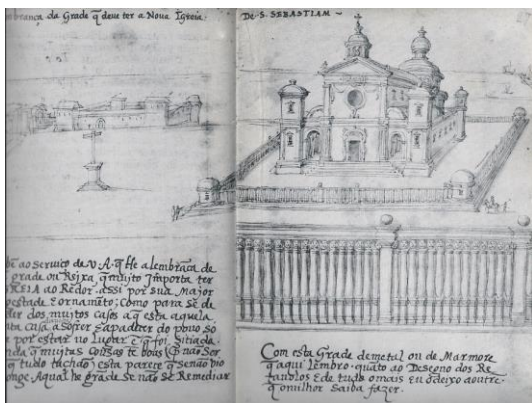 brança da Grade q̃ deve ter a Nova Igreia:
DE·S·SEBASTIAM ~
ao serviço de V A· q̃ He a lembrãça de
grade ou Reixa, q̃ muito Importa ter
ao Redor, assi por sua Maior
e ornamẽto; Como para se de
dos muitos casos a q̃ esta aquela
casa a sofrer do povo só
por estar no Lugar ẽ q̃ foi sitiada.
q̃ muitas Cousas tẽ boas
q̃ tudo tachão) esta parece q̃ senão
Aqual he grade se não se Remediar
Com esta Grade de metal ou de Marmore
q̃ aqui Lembro· quãto ao Desegno dos Re
tavolos E de tudo o mais eu o deixo a outrẽ·
q̃ o milhor saiba fazer.